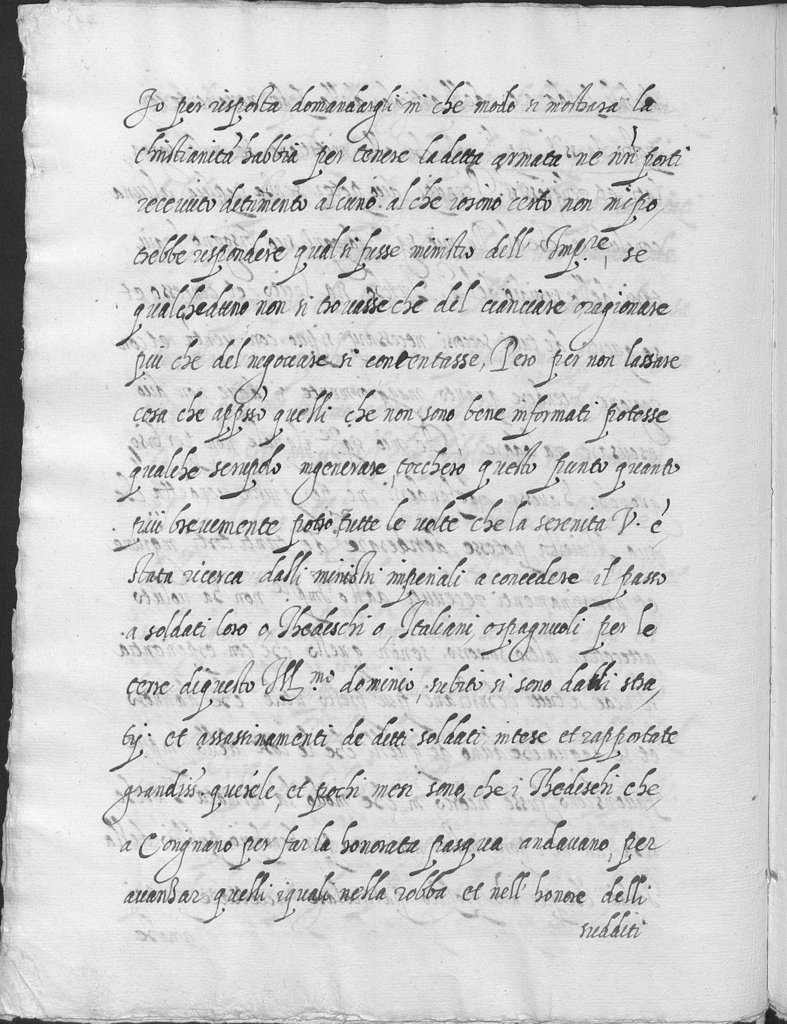 Io per risposta domandargli in che modo si mostrara la
christianità habbia per tenere la detta armata ne nri porti
recevuto detrimento alcuno. al che io sono certo non mi po
trebbe rispondere qual si fusse ministro dell' Imp.re, se
qualcheduno non si trovasse che del cianciare o ragionare
piu che del negotiare si contentasse, Pero per non lassare
cosa che appsso quelli che non sono bene informati potesse
qualche scrupolo ingenerare, toccherò questo punto quanto
piu brevemente potro, tutte le volte che la serenita V. è
stata ricerca dalli ministri imperiali a concedere il passo
a soldati loro o Thedeschi o, Italiani, o spagnuoli per le
terre di questo Ill.mo dominio, subito si sono dalli stra
tij. et assassinamenti de detti soldati intese et rapportate
grandiss.e querele, et pochi mesi sono, che i Thedeschi che
a Corignano per far la honorata pasqua andavano, per
avanzar quelli, i quali nella robba et nell' honore delli
sudditi